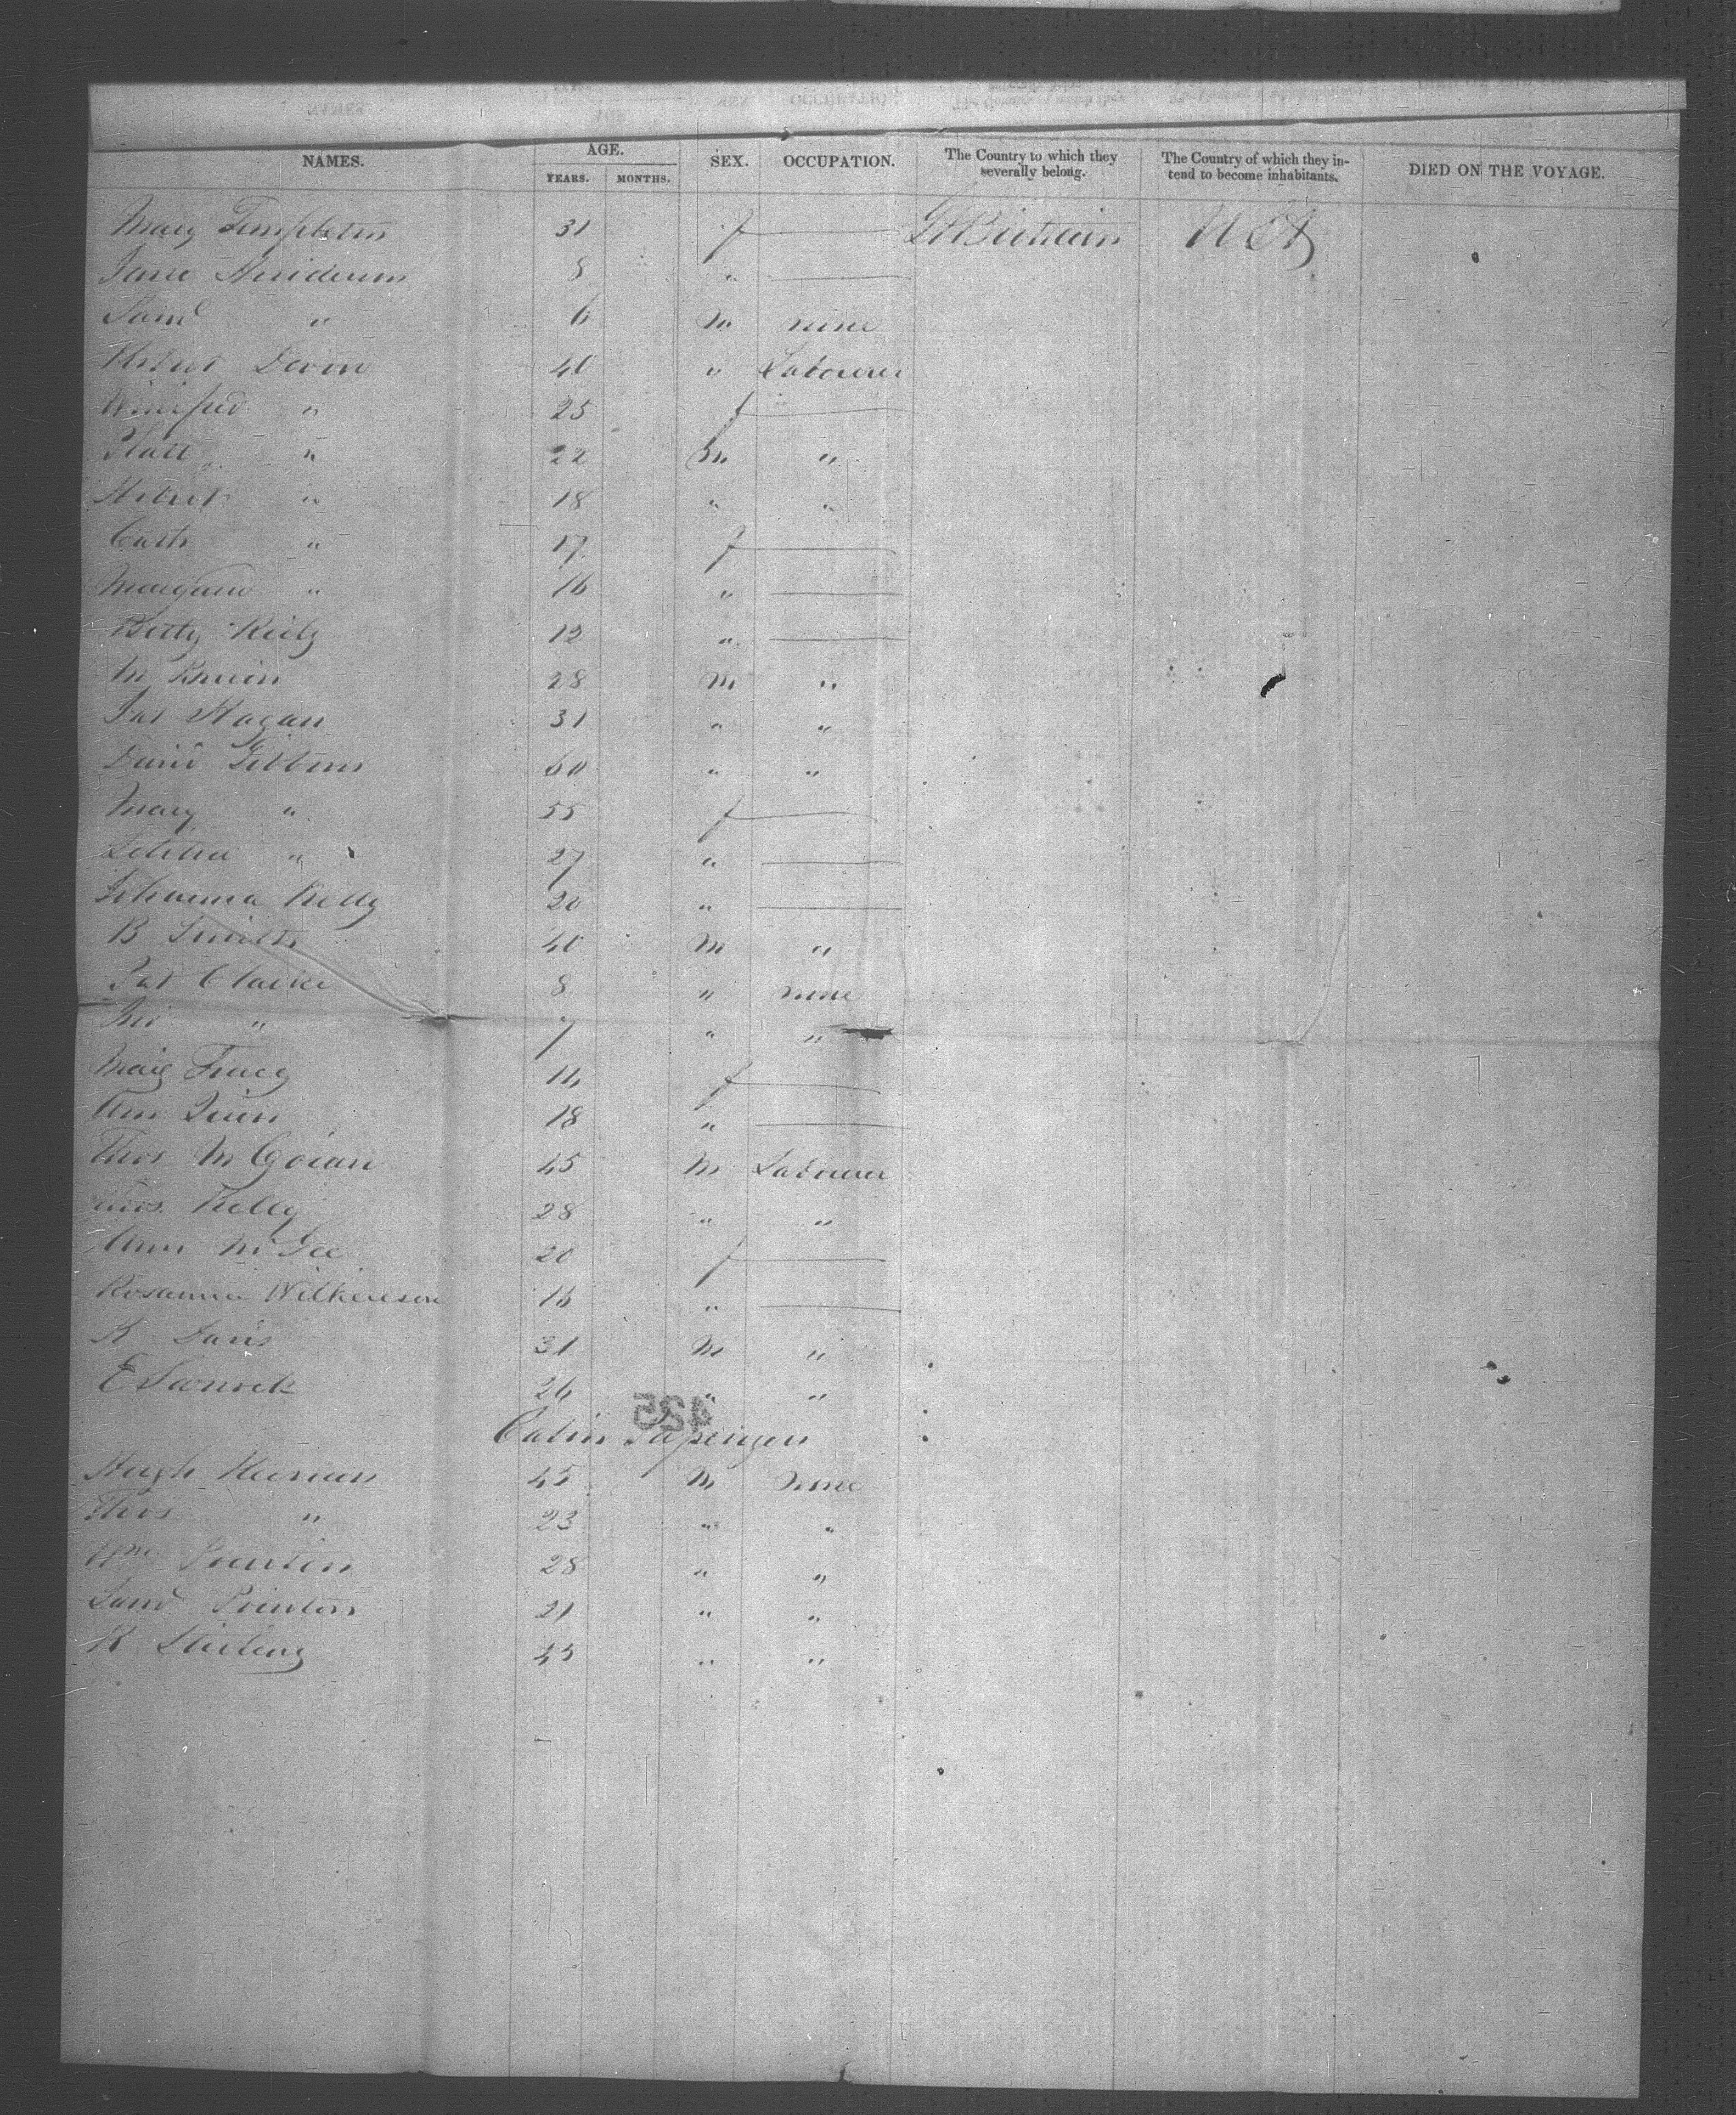 NAMES. AGE. YEARS. MONTHS. SEX. OCCUPATION. The Country to which they severally belong. The Country of which they intend to become inhabitants. DIED ON THE VOYAGE.
Mary Templeton 31 f — Gt Britain U S A
Jane Henderson 8 " —
Saml " 6 m none
Devine 40 " Labourer
Winifred " 25 f —
" 22 m "
" 18 " "
Cath " 17 f —
Margaret " 16 " —
Betty Reily 12 " —
M 28 m "
Pat Hagan 31 " "
David Gibbons 60 " "
Mary " 55 f —
Letitia " 27 " —
Johanna Kelly 20 " —
B Smith 40 m "
Pat Clarke 8 " none
" 7 " "
Mary Tracy f —
Ann Quinn 18 " —
Thos 45 m Labourer
Thos. Kelly 28 " "
Ann McGee 20 f —
Rosanna Wilkereson 16 " —
R Davis 31 m "
E 26 " "
425
Cabin Passengers
Hugh 45 m none
Thos " 23 " "
Wm Pointon 28 " "
Saml Pointon 21 " "
R Stirling 45 " "